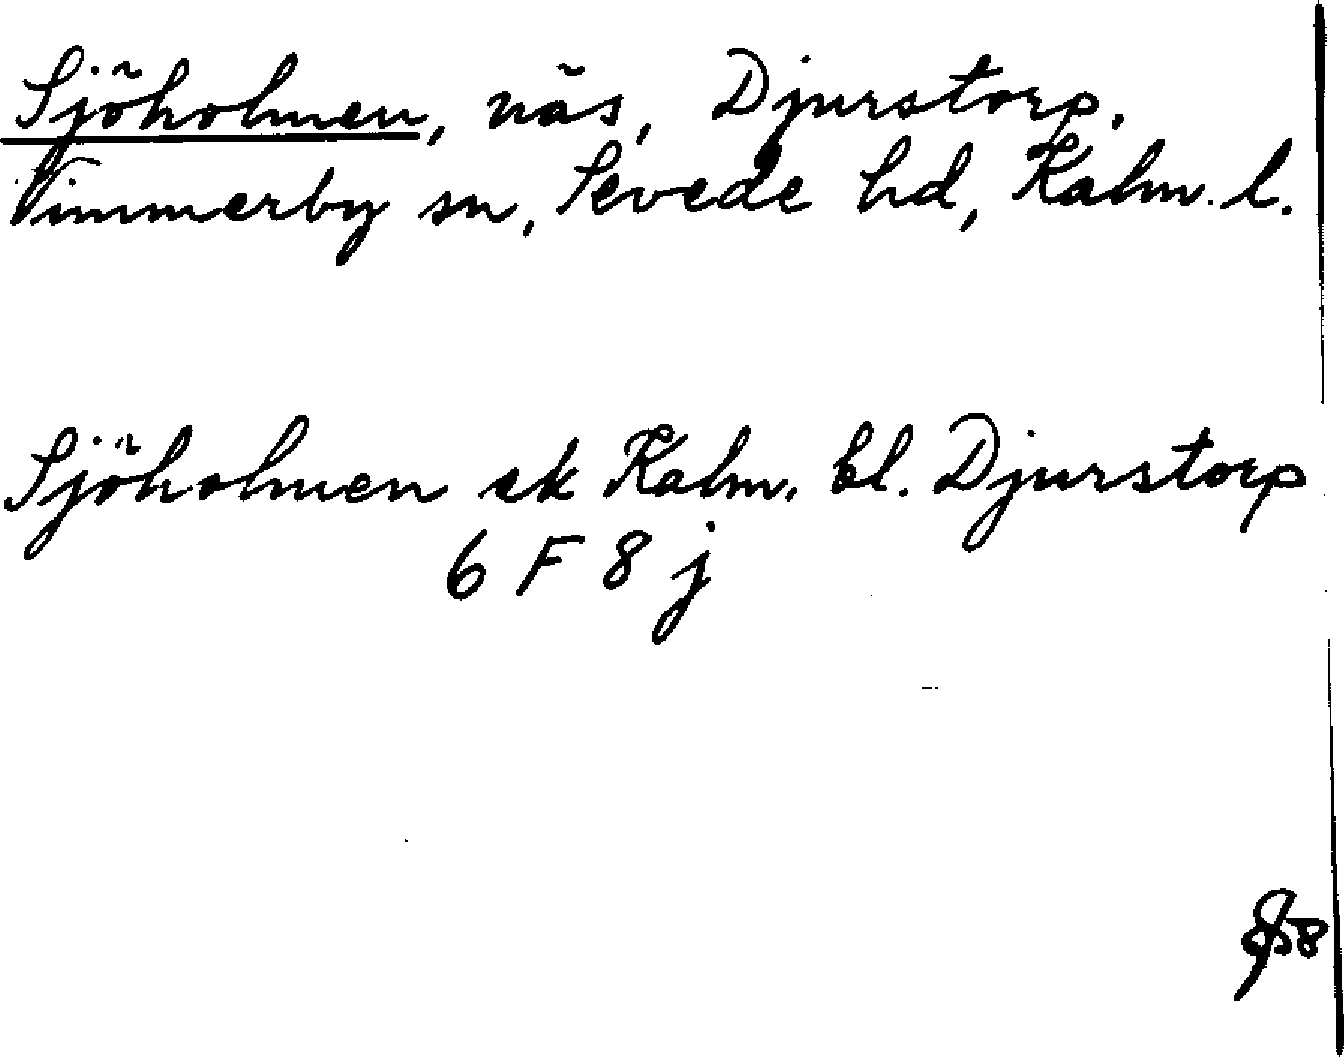 Sjöholmen, näs, Djurstorp.
Vimmerby sn, Sevede hd, Kalm. l.
Sjöholmen ek Kalm. bl. Djurstorp
6 F 8 j
58